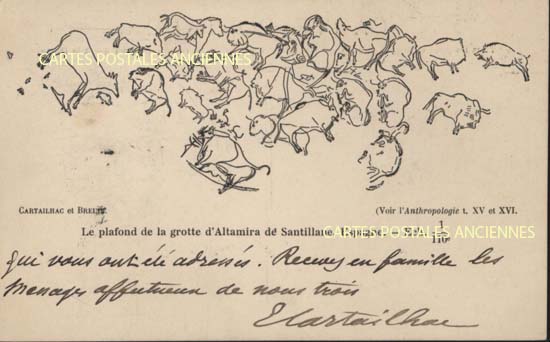 CARTES POSTALES ANCIENNES
CARTAILHAC et BREUIL
(Voir l'Anthropologie t. XV et XVI.
Le plafond de la grotte d'Altamira de Santillane 1/110
CARTES POSTALES ANCIENNES
qui vous ont été adressés. Recevez en famille les
messages affectueux de nous trois
ECartailhac